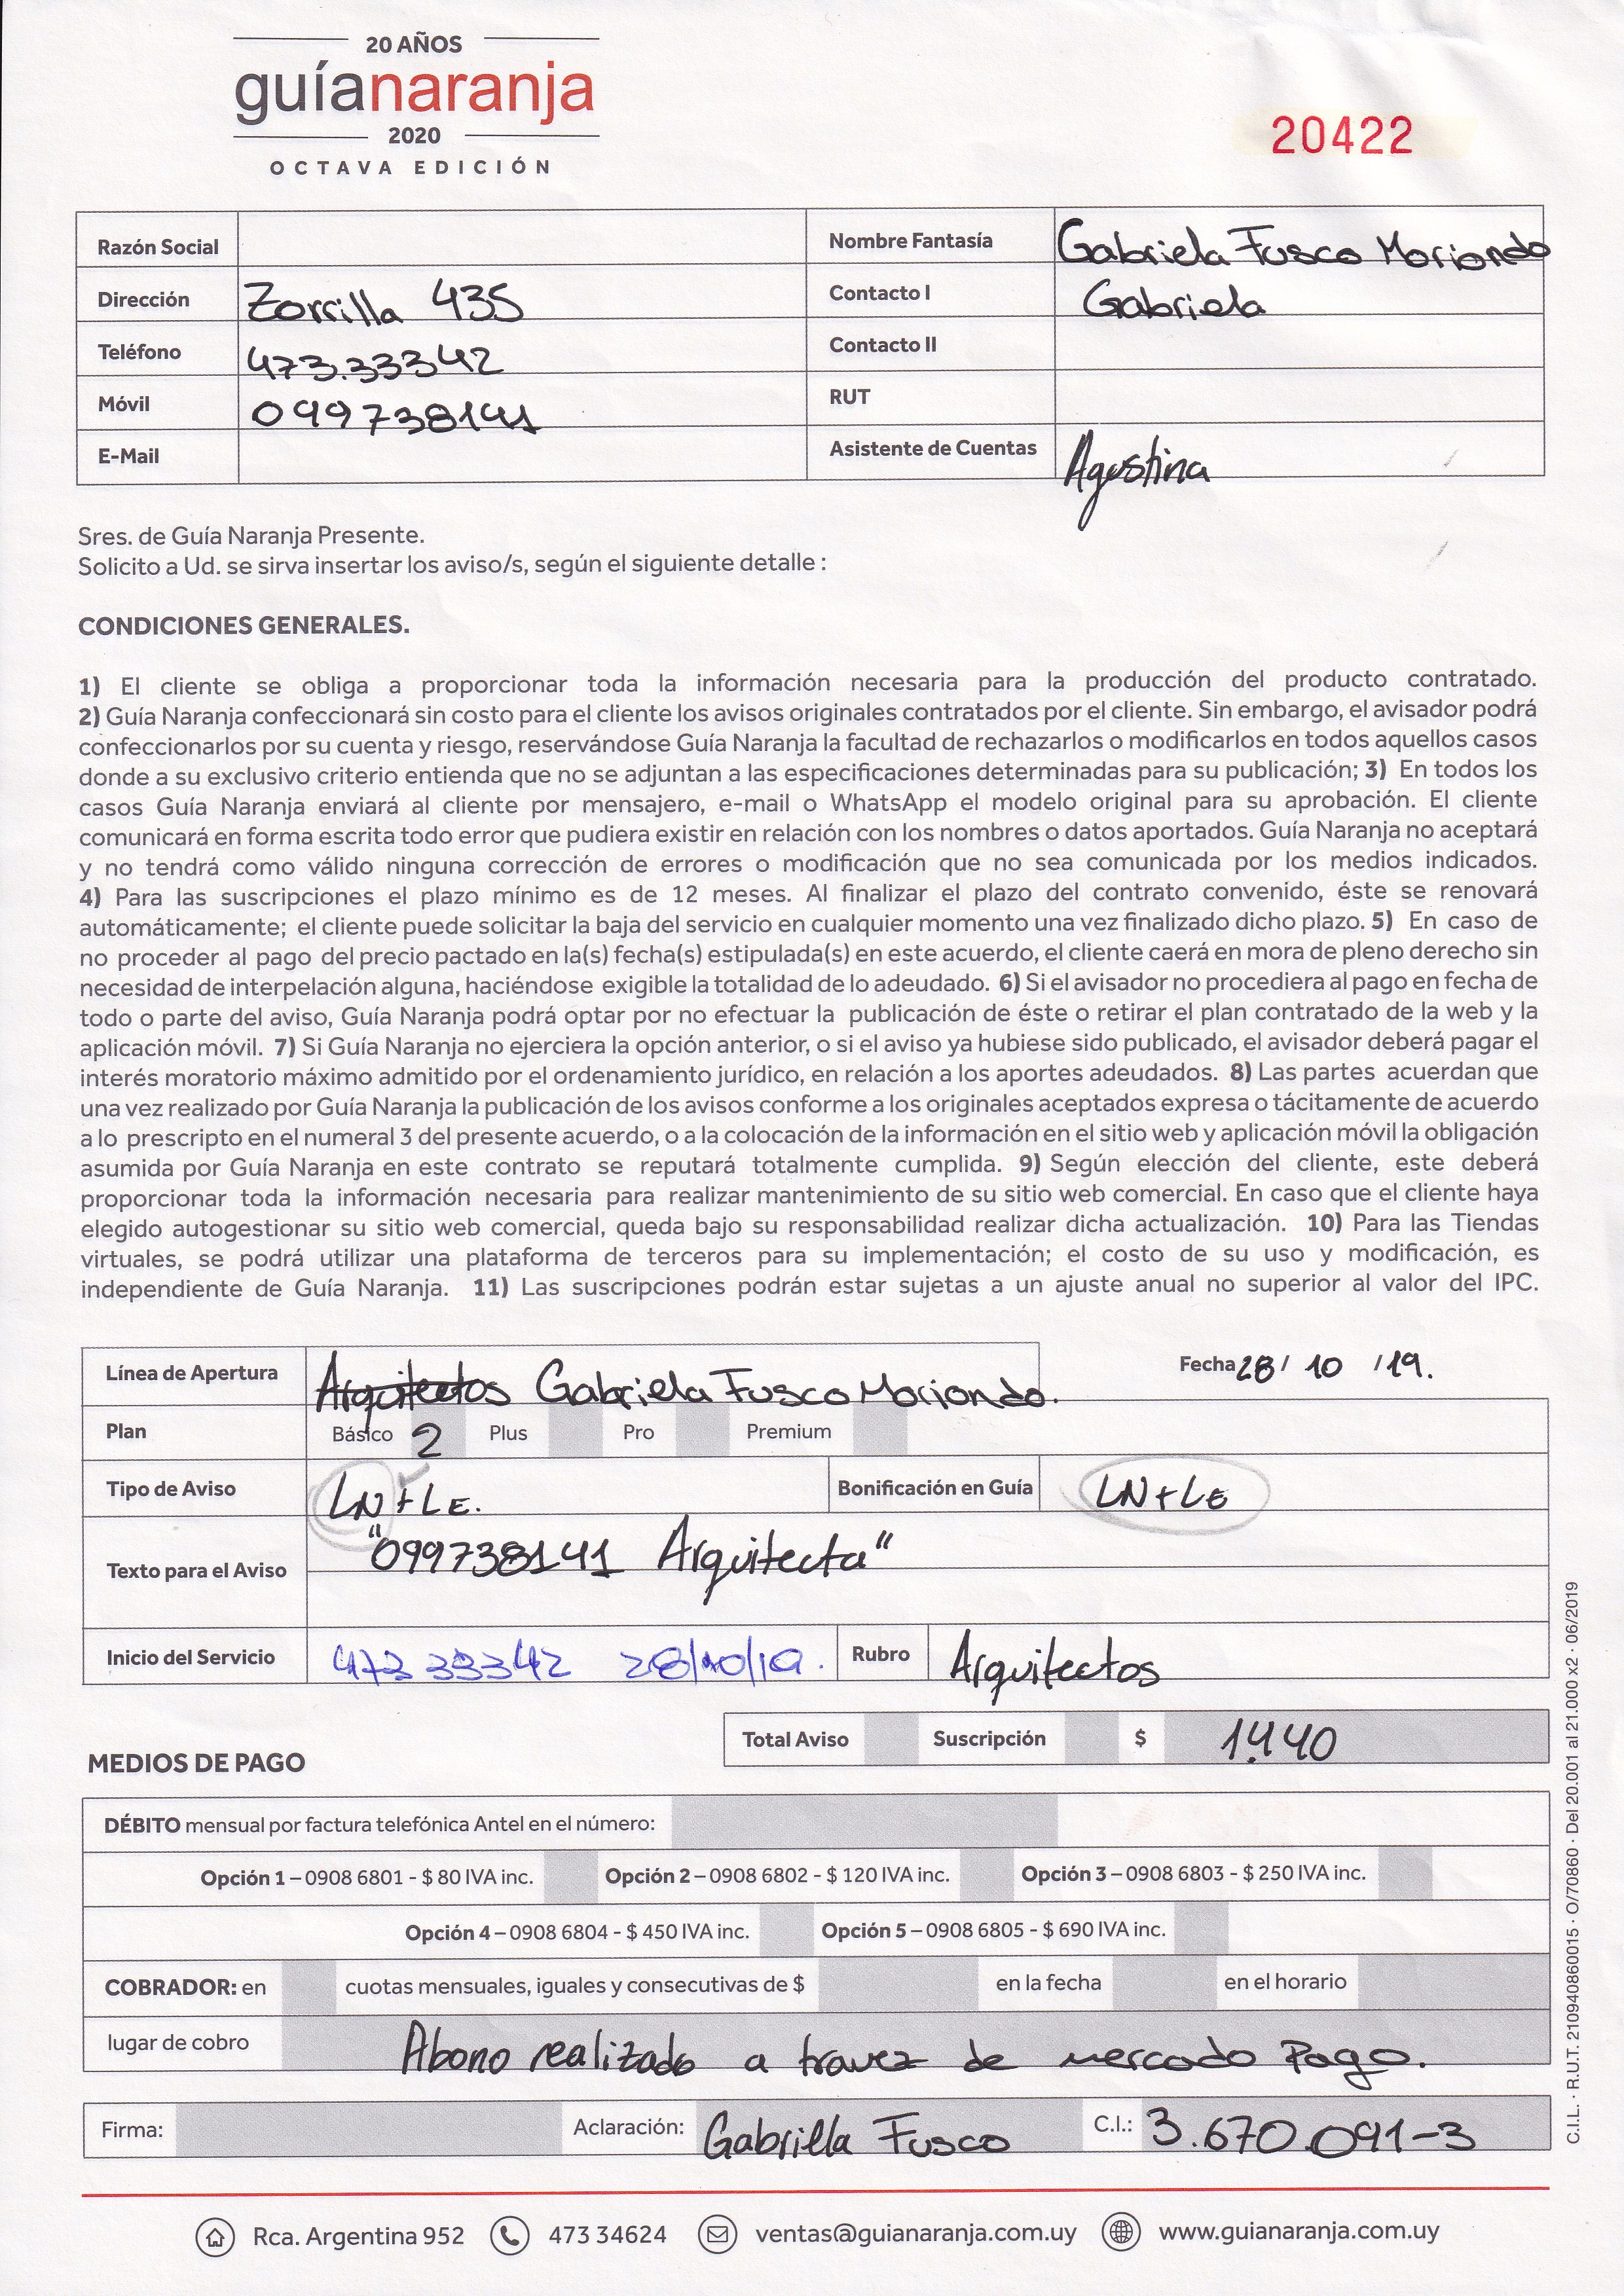 20 AÑOS
guíanaranja
2020
OCTAVA EDICIÓN
20422
Razón Social
Nombre Fantasía Gabriela Fusco Moriondo
Dirección Zorrilla 435
Contacto I Gabriela
Teléfono 473.33342
Contacto II
Móvil 099738141
RUT
E-Mail
Asistente de Cuentas Agostina
Sres. de Guía Naranja Presente.
Solicito a Ud. se sirva insertar los aviso/s, según el siguiente detalle :
CONDICIONES GENERALES.
1) El cliente se obliga a proporcionar toda la información necesaria para la producción del producto contratado.
2) Guía Naranja confeccionará sin costo para el cliente los avisos originales contratados por el cliente. Sin embargo, el avisador podrá
confeccionarlos por su cuenta y riesgo, reservándose Guía Naranja la facultad de rechazarlos o modificarlos en todos aquellos casos
donde a su exclusivo criterio entienda que no se adjuntan a las especificaciones determinadas para su publicación; 3) En todos los
casos Guía Naranja enviará al cliente por mensajero, e-mail o WhatsApp el modelo original para su aprobación. El cliente
comunicará en forma escrita todo error que pudiera existir en relación con los nombres o datos aportados. Guía Naranja no aceptará
y no tendrá como válido ninguna corrección de errores o modificación que no sea comunicada por los medios indicados.
4) Para las suscripciones el plazo mínimo es de 12 meses. Al finalizar el plazo del contrato convenido, éste se renovará
automáticamente; el cliente puede solicitar la baja del servicio en cualquier momento una vez finalizado dicho plazo. 5) En caso de
no proceder al pago del precio pactado en la(s) fecha(s) estipulada(s) en este acuerdo, el cliente caerá en mora de pleno derecho sin
necesidad de interpelación alguna, haciéndose exigible la totalidad de lo adeudado. 6) Si el avisador no procediera al pago en fecha de
todo o parte del aviso, Guía Naranja podrá optar por no efectuar la publicación de éste o retirar el plan contratado de la web y la
aplicación móvil. 7) Si Guía Naranja no ejerciera la opción anterior, o si el aviso ya hubiese sido publicado, el avisador deberá pagar el
interés moratorio máximo admitido por el ordenamiento jurídico, en relación a los aportes adeudados. 8) Las partes acuerdan que
una vez realizado por Guía Naranja la publicación de los avisos conforme a los originales aceptados expresa o tácitamente de acuerdo
a lo prescripto en el numeral 3 del presente acuerdo, o a la colocación de la información en el sitio web y aplicación móvil la obligación
asumida por Guía Naranja en este contrato se reputará totalmente cumplida. 9) Según elección del cliente, este deberá
proporcionar toda la información necesaria para realizar mantenimiento de su sitio web comercial. En caso que el cliente haya
elegido autogestionar su sitio web comercial, queda bajo su responsabilidad realizar dicha actualización. 10) Para las Tiendas
virtuales, se podrá utilizar una plataforma de terceros para su implementación; el costo de su uso y modificación, es
independiente de Guía Naranja. 11) Las suscripciones podrán estar sujetas a un ajuste anual no superior al valor del IPC.
Línea de Apertura Arquitectos Gabriela Fusco Moriondo.
Fecha 28/ 10 /19.
Plan Básico 2 Plus Pro Premium
Tipo de Aviso LN + LE.
Bonificación en Guía LN + LE
Texto para el Aviso "099738141 Arquitecta"
Inicio del Servicio 473 33342 28/10/19.
Rubro Arquitectos
Total Aviso Suscripción $ 1.440
MEDIOS DE PAGO
DÉBITO mensual por factura telefónica Antel en el número:
Opción 1 – 0908 6801 - $ 80 IVA inc. Opción 2 – 0908 6802 - $ 120 IVA inc. Opción 3 – 0908 6803 - $ 250 IVA inc.
Opción 4 – 0908 6804 - $ 450 IVA inc. Opción 5 – 0908 6805 - $ 690 IVA inc.
COBRADOR: en cuotas mensuales, iguales y consecutivas de $ en la fecha en el horario
lugar de cobro Abono realizado a travez de mercado Pago.
Firma: Aclaración: Gabriella Fusco C.I.: 3.670.091-3
Rca. Argentina 952 473 34624 ventas@guianaranja.com.uy www.guianaranja.com.uy
C.I.L. · R.U.T. 210940860015 · O/70860 · Del 20.001 al 21.000 x2 · 06/2019